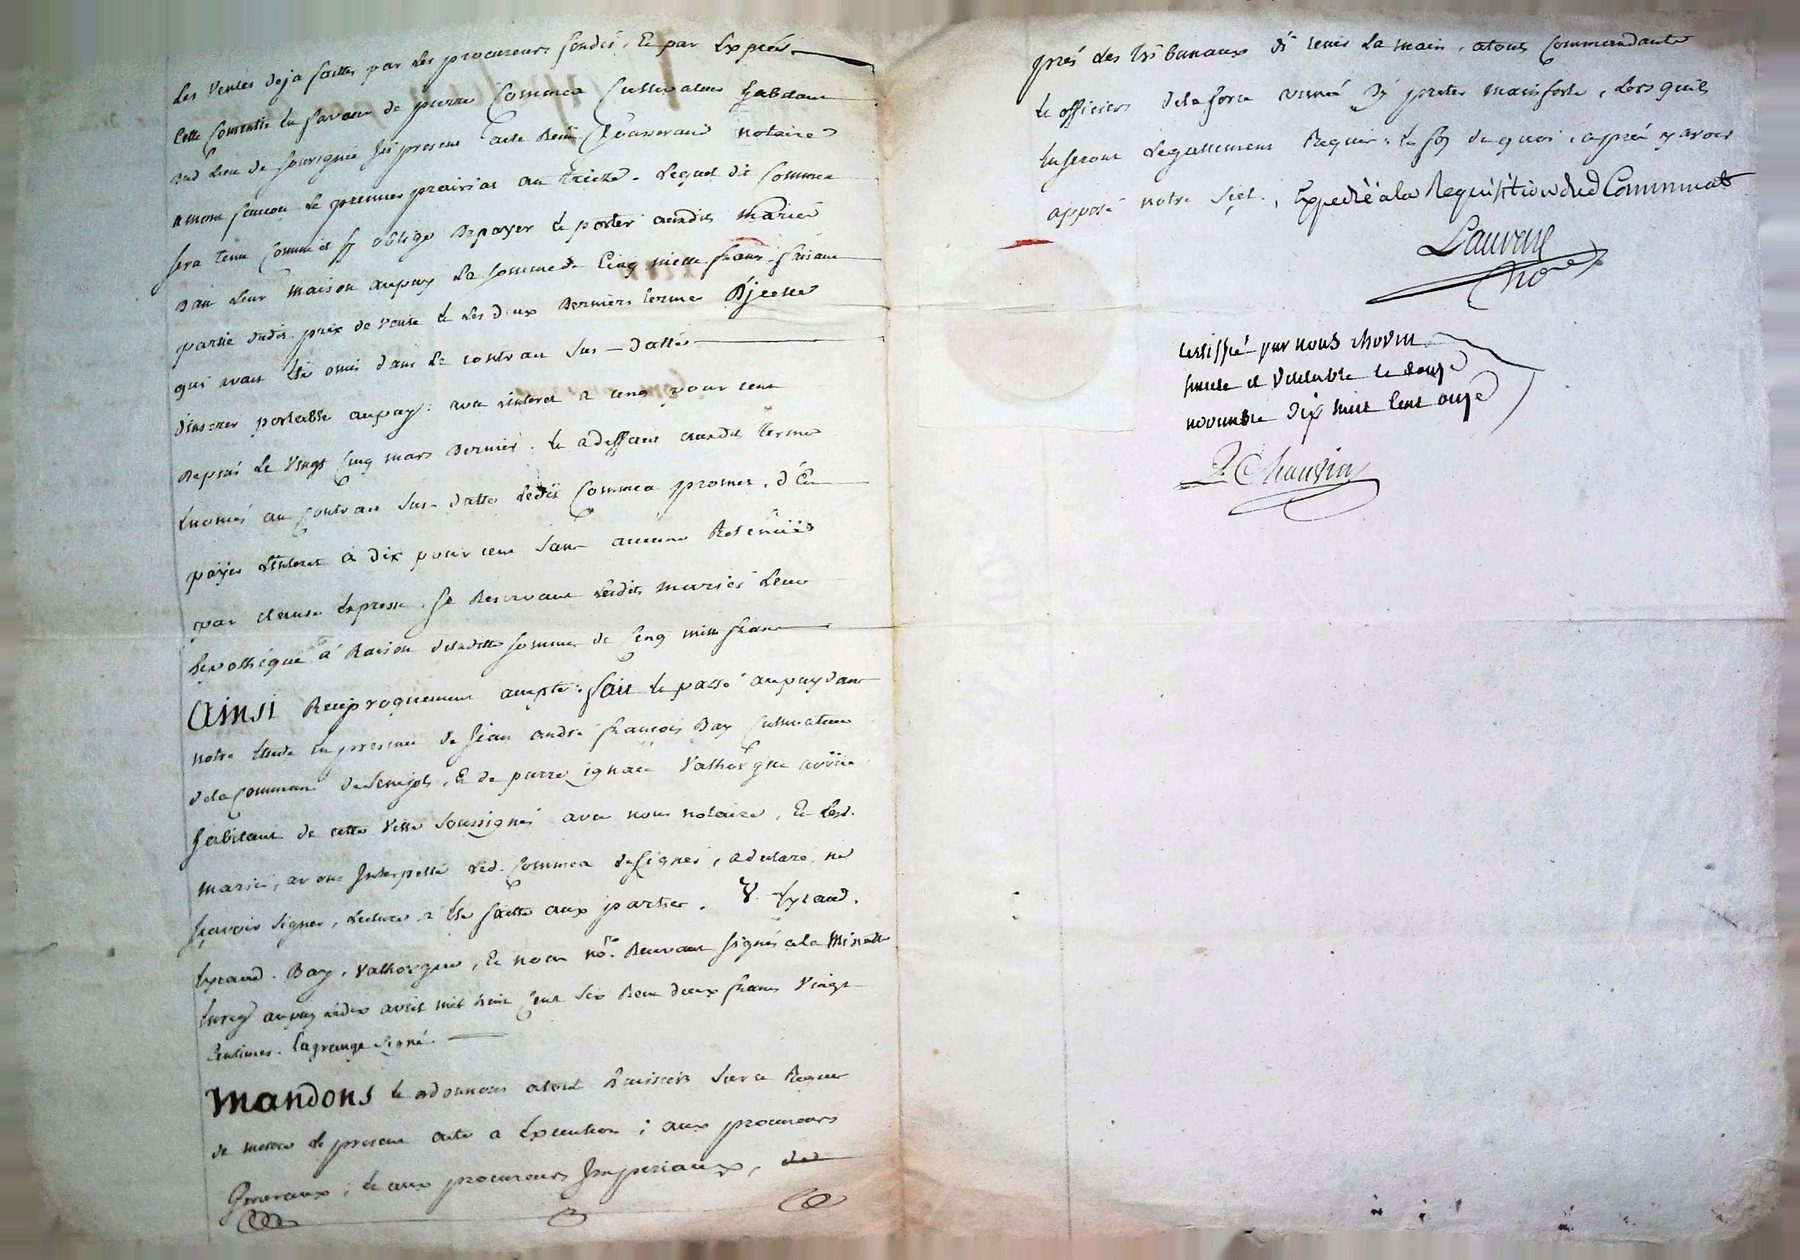 les ventes deja faittes par les procureurs fondés, Et par Exprés
Celle Consentie En faveur de pierre Commea Cultivateur habitant
aud Lieu de
le premier prairial an treize. Lequel dit Commea
Sera tenu Comme il s'y oblige De payer Et porter auxdits Mariés
Dans Leur Maison aupuy La Somme de Cinq mille francs faisant
partie dudit prix de Vente Et Les deux Derniers termes D'jcelle
qui avait Eté omis dans le contrat Sus-datté
d'inserer portable aupuy: avec interet a cinq pour cent
Depuis Le Vingt Cinq mars Dernier. Et a deffaut auxdits termes
Enoncés au Contrat Sus-datté Ledit Commea promet, d'En
payer L'interet à dix pour cent Sans aucune Retenüe
par clause Expresse, Se Reservant Lesdits mariés Leur
hipothéque à Raison de laditte Somme de Cinq mille francs
Ainsi Reciproquement accepté: fait Et passé aupuy dans
notre Etude En presence de Jean andré françois Bay Cultivateur
dela Commune de , Et de pierre ignace Valhorgue
habitant de cette Ville Soussignés avec nous notaire, Et Lesd.
Mariés, avons Interpellé led. Commea de Signer, a declaré ne
Sçavoir Signer, Lecture a Eté faitte aux parties. V. Eyraud.
Eyraud. Bay, Valhorgue, Et nous no.re Recevant Signés ala Minutte
Enreg aupuy le dix avril mil huit Cent Six Recu deux francs Vingt
Centimes. Lagrange Signé.
Mandons Et ordonnons atous huissiers Sur ce Requis
de mettre le present acte a Execution; aux procureurs
Generaux; Et aux procureurs Imperiaux,
prés les tribunaux d'y tenir La main, atous Commandants
Et officiers dela force armée d'y preter mainforte, Lors qu'ils
En seront Legallement Requis: En foy de quoi, aprés y avoir
apposé notre Scel., Expedié ala Requisition dud Commea
Laurent
no.re
certiffié par nous chovin
le douze
novembre dix huit Cent onze
Chauvin